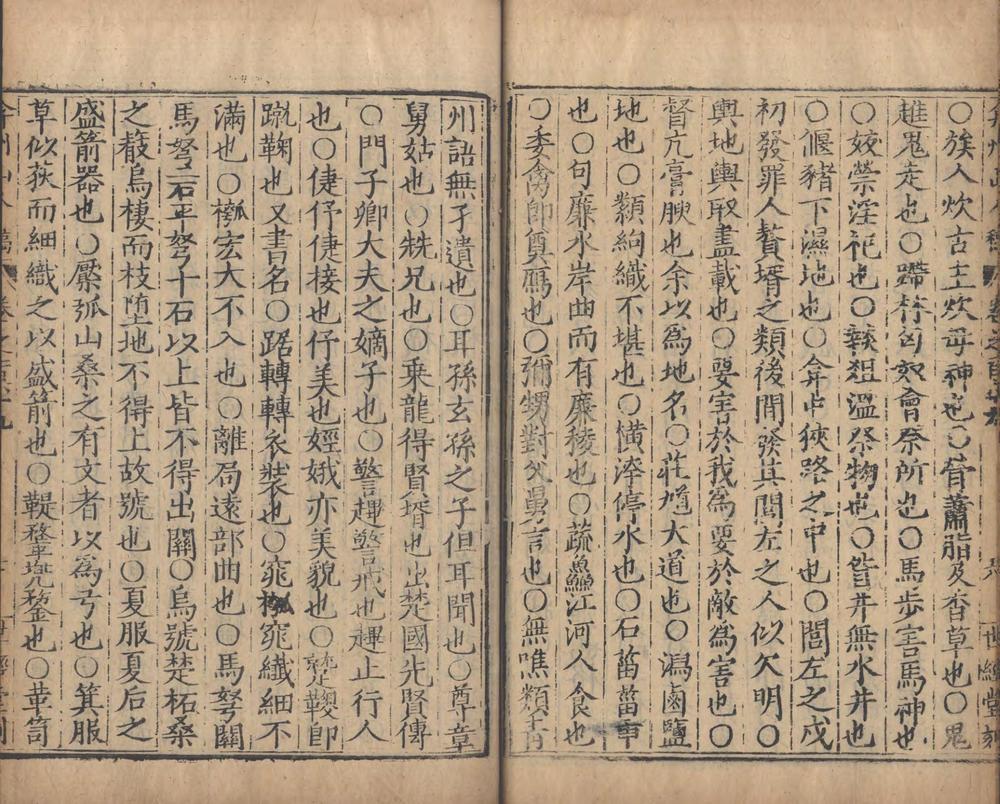 弇州山人稿 卷之百五十九 世經堂刻
〇族人炊古主炊母神也〇膋蕭脂及香草也〇鬼
趡鬼走也〇蹛林匈奴會祭所也〇馬步害馬神也
〇姣禜淫祀也〇蕝組溫祭物也〇眢井無水井也
〇偃豬下濕地也〇弇中狹路之中也〇閭左之戍
初發罪人贅壻之類後閒發其閭左之人似欠明〇
輿地輿取盡載也〇要害於我為要於敵為害也〇
督亢膏腴也余以為地名〇莊馗大道也〇潟鹵鹽
地也〇纇絇織不堪也〇潢淖停水也〇石菑菑
也〇句廉水岸曲而有廉稜也〇蔬鱻江河人食也
〇委禽卽奠鴈也〇彌甥對父舅言也〇無噍類青
州語無孑遺也〇耳孫玄孫之子但耳聞也〇尊章
舅姑也〇兟兄也〇乗龍得賢壻也出楚國先賢傳
〇門子卿大夫之嫡子也〇警趩警戒也趩止行人
也〇倢伃倢接也伃美也娙娥亦美貌也〇鞠卽
蹴鞠也又書名〇踞轉轉衣裝也〇窕槬窕纖細不
滿也〇槬宏大不入也〇離局遠部曲也〇馬弩關
馬弩二石正弩十石以上皆不得出關〇烏號楚柘桑
之榖烏棲而枝墮地不得上故號也〇夏服夏后之
盛箭器也〇檿弧山桑之有文者以為弓也〇箕服
草似荻而細織之以盛箭也〇鞮鍪兜鍪也〇革笥